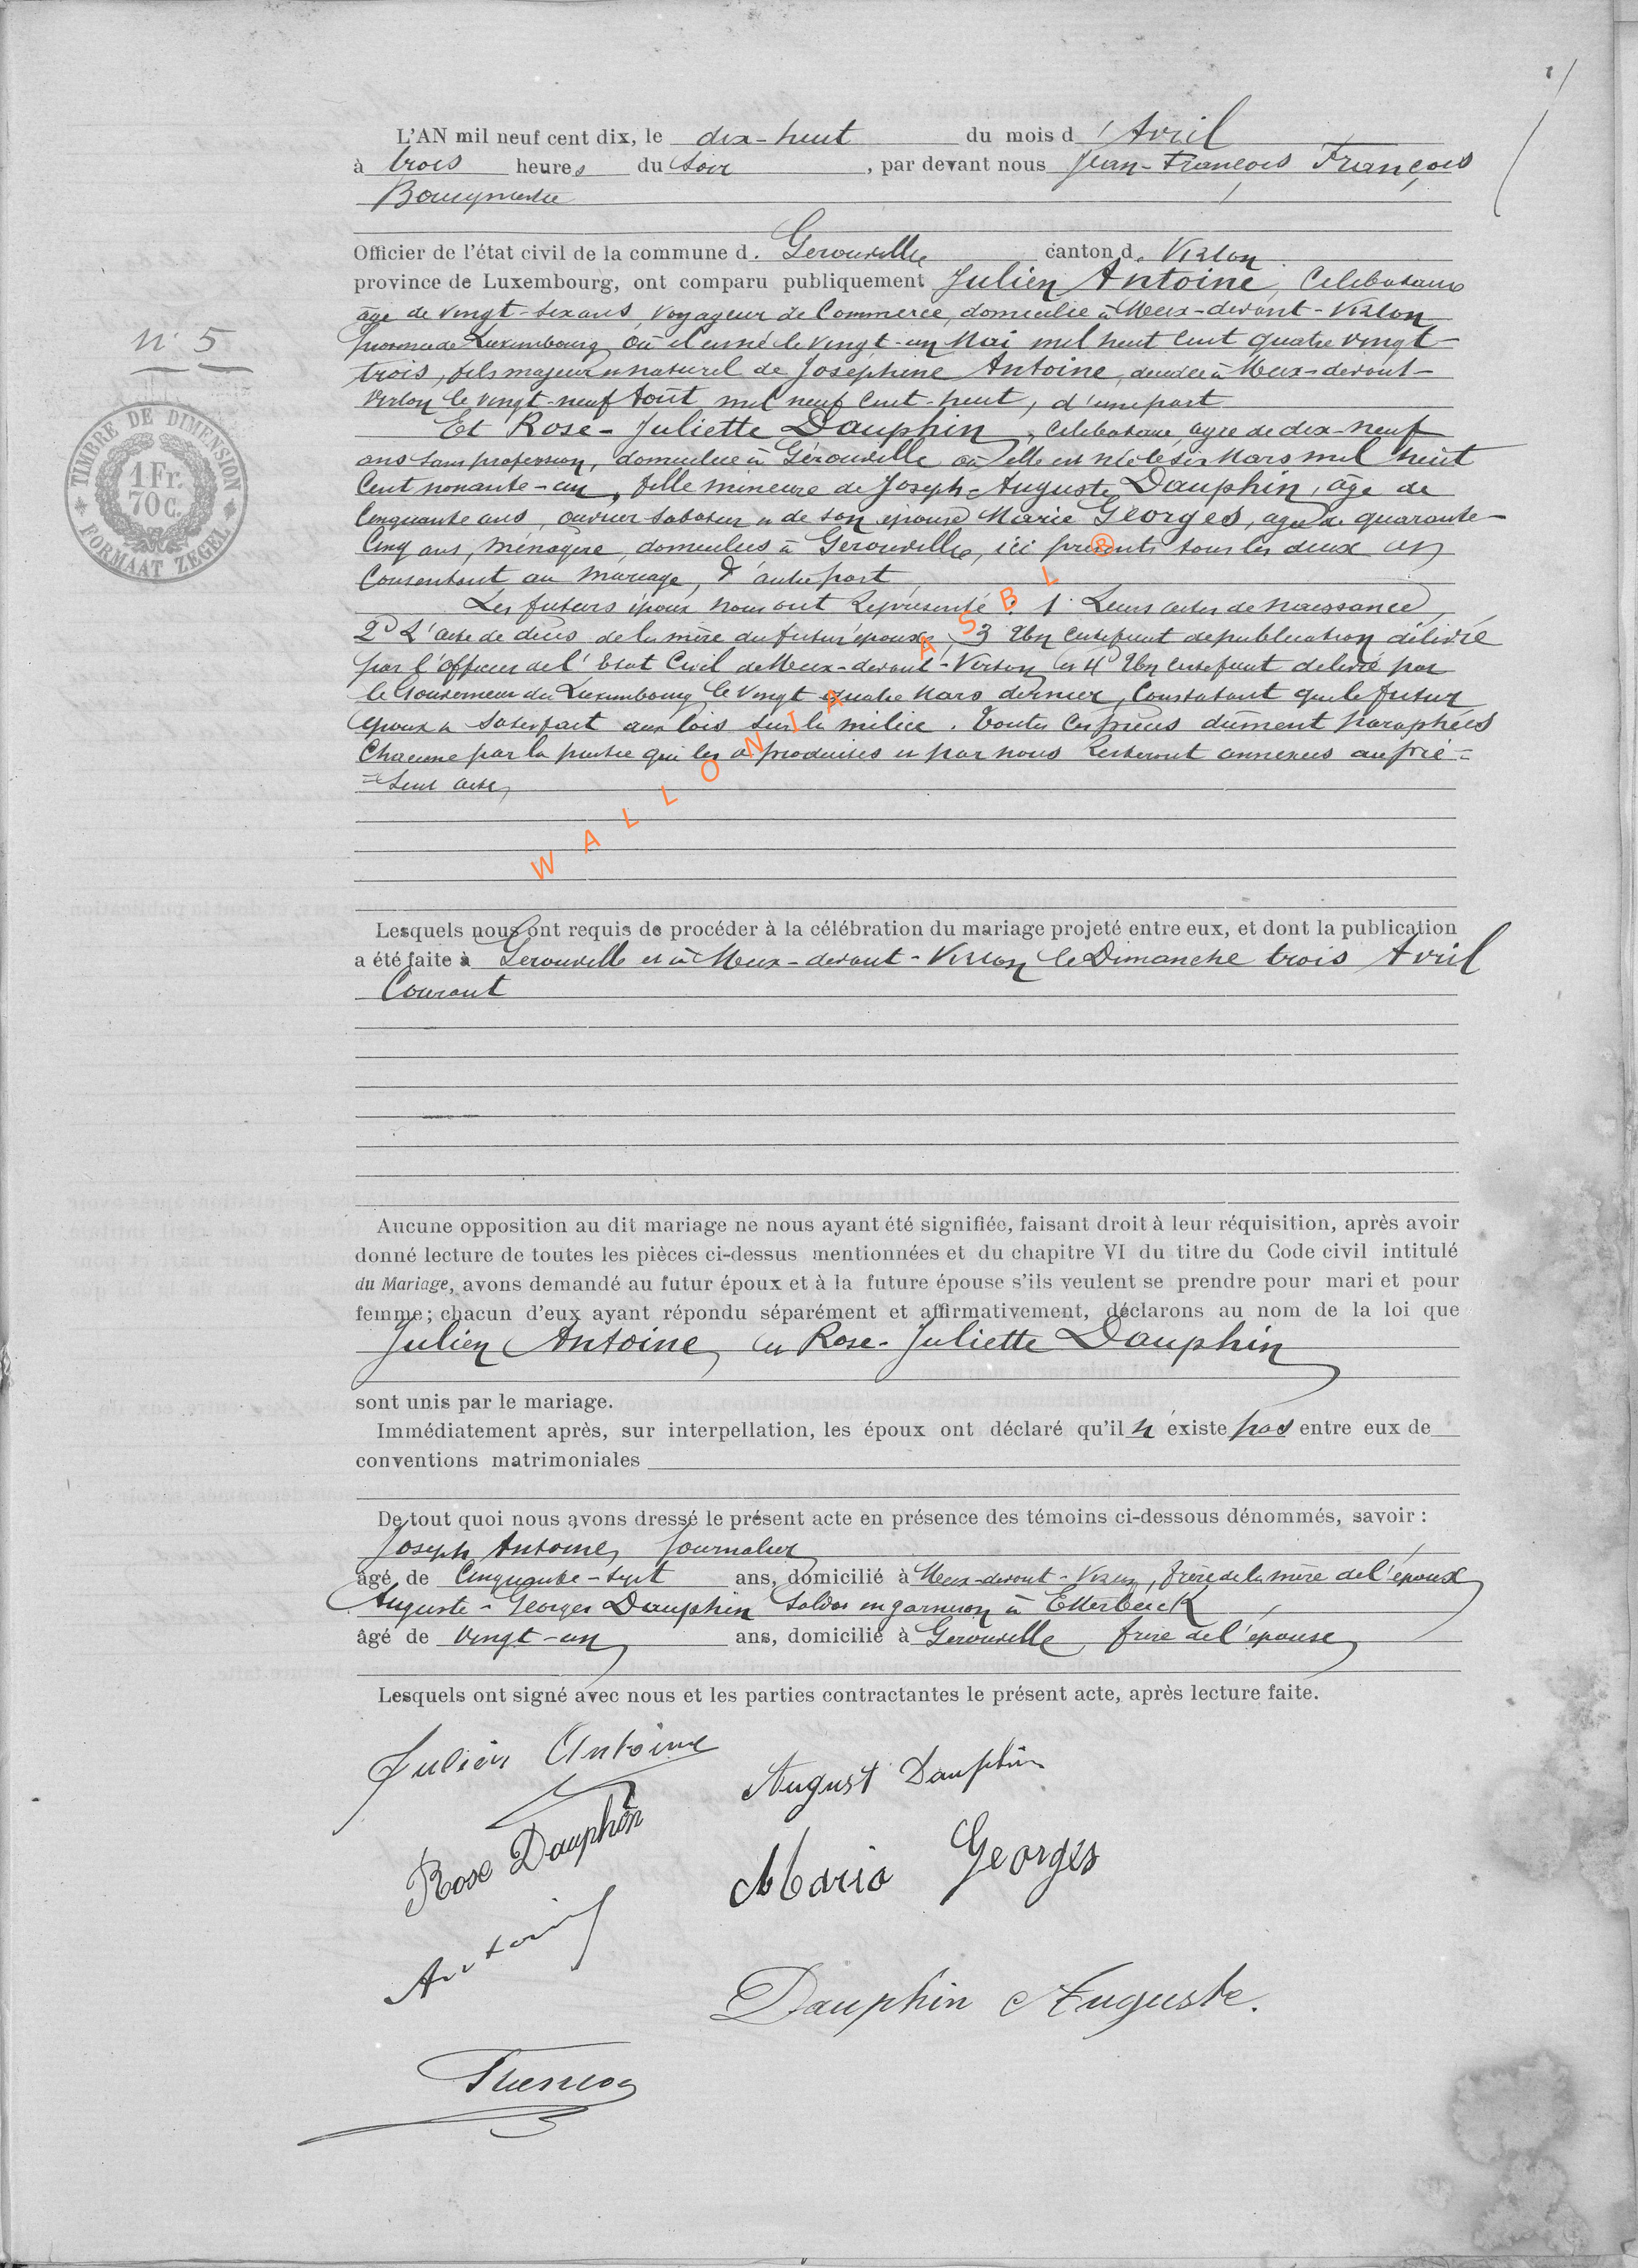 L'AN mil neuf cent dix, le dix-huit du mois d'Avril
à trois heures du soir, par devant nous Jean-François François
Bourgmestre
Officier de l'état civil de la commune d. Gérouville canton d. Virton
province de Luxembourg, ont comparu publiquement Julien Antoine, Célibataire
âgé de vingt-six ans, voyageur de Commerce, domicilié à Meix-devant-Virton
N° 5
province de Luxembourg où il est né le vingt-un Mai mil huit cent quatre vingt-
trois, fils majeur et naturel de Joséphine Antoine, décédée à Meix-devant-
Virton le vingt-neuf Août mil neuf cent-huit, d'une part
Et Rose-Juliette Dauphin, célibataire, agée de dix-neuf
ans sans profession, domiciliée à Gérouville où elle est née le six Mars mil huit
Cent nonante-un, fille mineure de Joseph-Auguste Dauphin, âgé de
Cinquante ans, ouvrier sabotier et de son épouse Marie Georges, agée de quarante-
Cinq ans, ménagère, domiciliés à Gérouville, ici présents tous les deux et
Consentant au mariage, d'autre part
TIMBRE DE DIMENSION
1 Fr.
70 c.
FORMAAT ZEGEL
Les futurs époux nous ont représenté : 1° Leurs actes de naissance,
2° L'acte de décès de la mère du futur époux, 3 Un certificat de publication délivré
par l'officier de l'Etat Civil de Meix-devant-Virton et 4° Un certificat délivré par
le Gouverneur du Luxembourg le vingt quatre Mars dernier, Constatant que le futur
époux a satisfait aux lois sur la milice. Toutes ces pièces dûment paraphées
Chacune par la partie qui les a produites et par nous resteront annexées au pré-
-sent acte,
WALLONIA ASBL ®
Lesquels nous ont requis de procéder à la célébration du mariage projeté entre eux, et dont la publication
a été faite à Gérouville et à Meix-devant-Virton le Dimanche trois Avril
Courant
Aucune opposition au dit mariage ne nous ayant été signifiée, faisant droit à leur réquisition, après avoir
donné lecture de toutes les pièces ci-dessus mentionnées et du chapitre VI du titre du Code civil intitulé
du Mariage, avons demandé au futur époux et à la future épouse s'ils veulent se prendre pour mari et pour
femme; chacun d'eux ayant répondu séparément et affirmativement, déclarons au nom de la loi que
Julien Antoine, et Rose-Juliette Dauphin
sont unis par le mariage.
Immédiatement après, sur interpellation, les époux ont déclaré qu'il n'existe pas entre eux de
conventions matrimoniales
De tout quoi nous avons dressé le présent acte en présence des témoins ci-dessous dénommés, savoir :
Joseph Antoine, Journalier
âgé de Cinquante-sept ans, domicilié à Meix-devant-Virton, frère de la mère de l'époux
Auguste-Georges Dauphin Soldat en garnison à Etterbeeck
âgé de Vingt-un ans, domicilié à Gérouville, frère de l'épouse
Lesquels ont signé avec nous et les parties contractantes le présent acte, après lecture faite.
Julien Antoine
August Dauphin
Rose Dauphin
Maria Georges
Antoine
Dauphin Auguste.